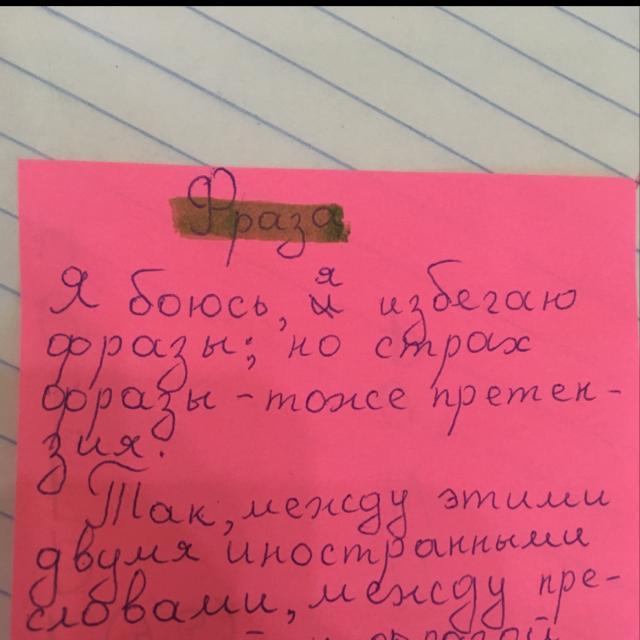 Фраза
Я боюсь, я избегаю
фразы; но страх
фразы - тоже претен-
зия.
Так, между этими
двумя иностранными
словами, между пре-